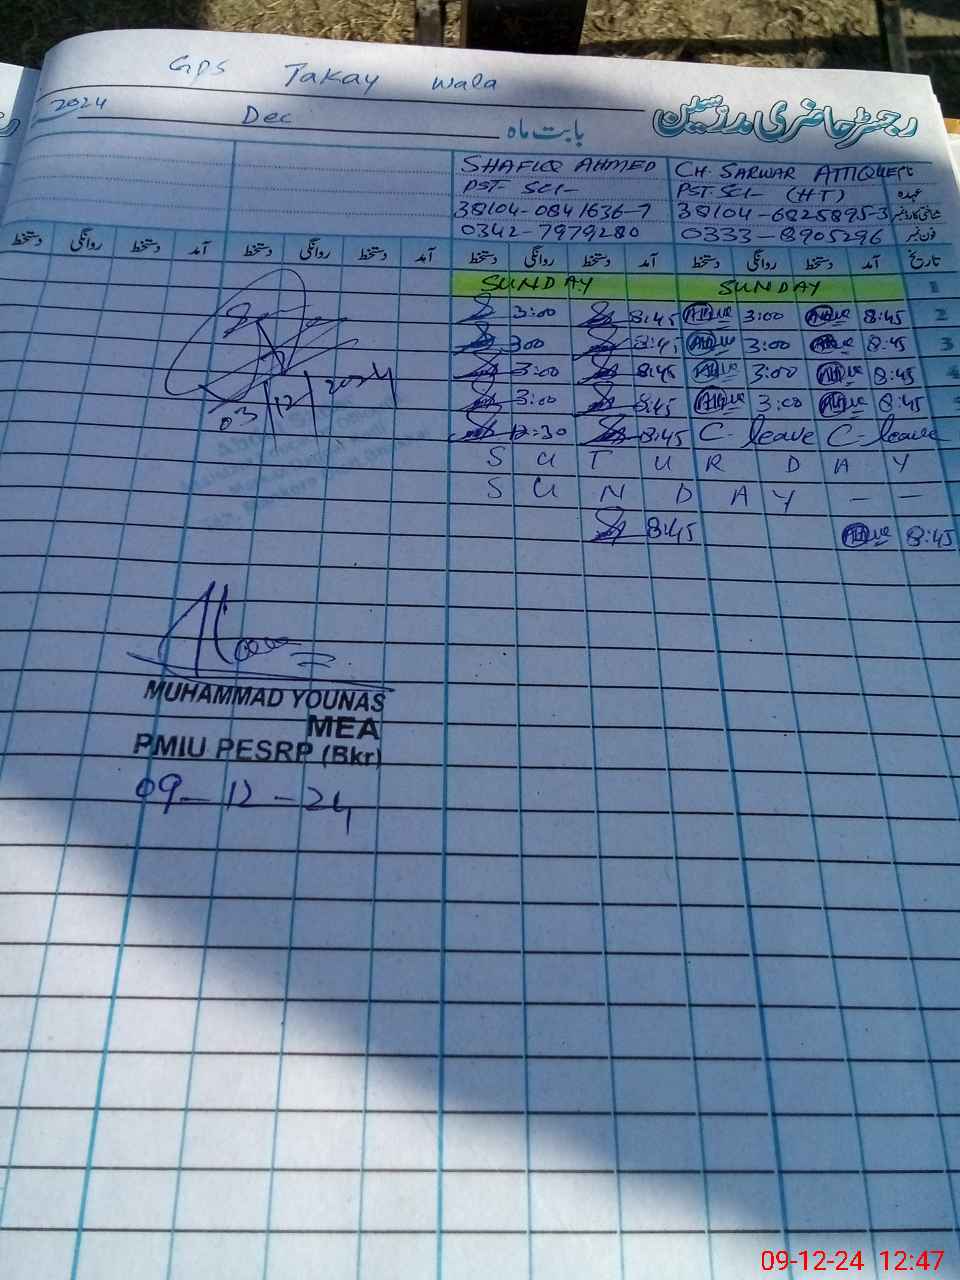 GPS Takay Wala
رجسٹر حاضری مدرسین
بابت ماہ Dec 2024
SHAFIQ AHMED CH. SARWAR ATTIQUE نام
PST SCI- PST. SCI- (HT) عہدہ
38104-0841636-7 38104-6825895-3 شناختی کارڈ نمبر
0342-7979280 0333-8905296 فون نمبر
تاریخ آمد دستخط روانگی دستخط آمد دستخط روانگی دستخط آمد دستخط روانگی دستخط آمد دستخط روانگی دستخط
SUNDAY SUNDAY 1
3:00 8:45 Attique 3:00 Attique 8:45 2
3:00 8:45 Attique 3:00 Attique 8:45 3
3:00 8:45 Attique 3:00 Attique 8:45 4
3:00 8:45 Attique 3:00 Attique 8:45 5
12:30 8:45 C-leave C-leave
S U T U R D A Y
S U N D A Y — —
8:45 Attique 8:45
03/12/2024
MUHAMMAD YOUNAS
MEA
PMIU PESRP (Bkr)
09-12-24
09-12-24 12:47